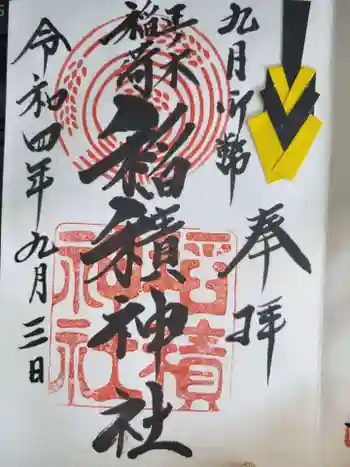 九月御幣
奉拝
正木
稲荷
稲積神社
稲積
神社
令和四年九月三日